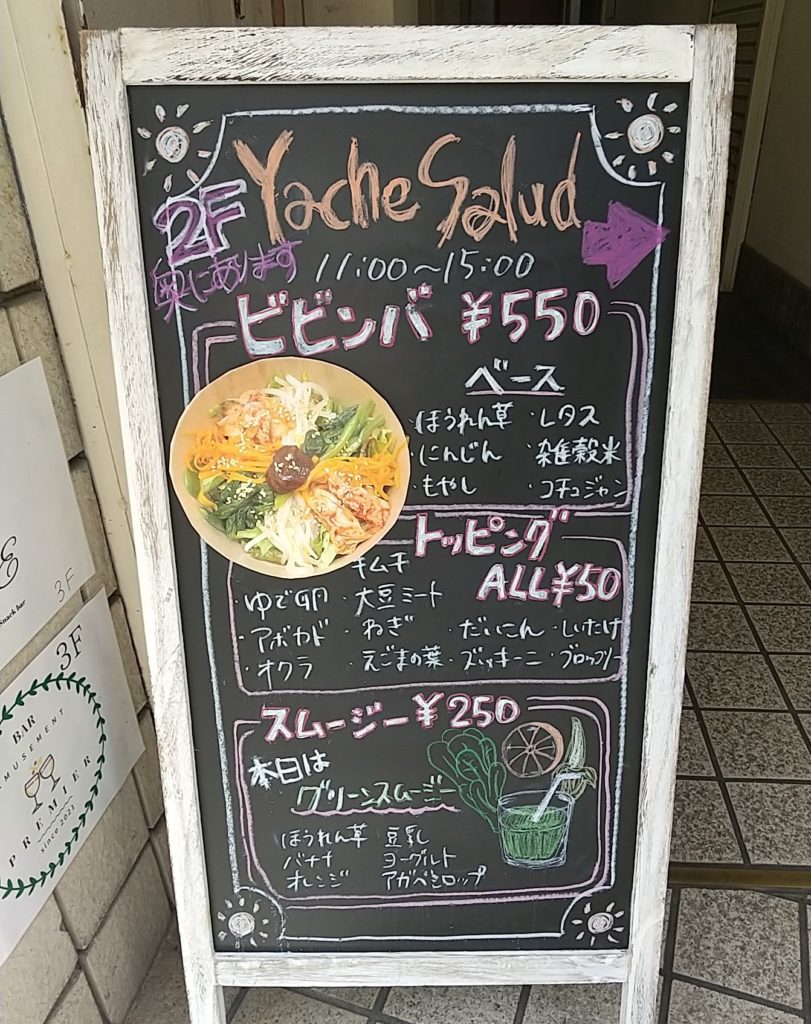 Yache Salud
2F
奥にあります
11:00～15:00
ビビンバ ¥550
ベース
・ほうれん草 ・レタス
・にんじん ・雑穀米
・もやし ・コチュジャン
トッピング
ALL ¥50
キムチ
・ゆで卵 ・大豆ミート
・アボカド ・ねぎ ・だいこん ・しいたけ
・オクラ ・えごまの葉 ・ズッキーニ ・ブロッコリー
スムージー ¥250
本日は
グリーンスムージー
ほうれん草 豆乳
バナナ ヨーグルト
オレンジ アガベシロップ
Snack bar
3F
3F
BAR
AMUSEMENT
PREMIER
since 2021